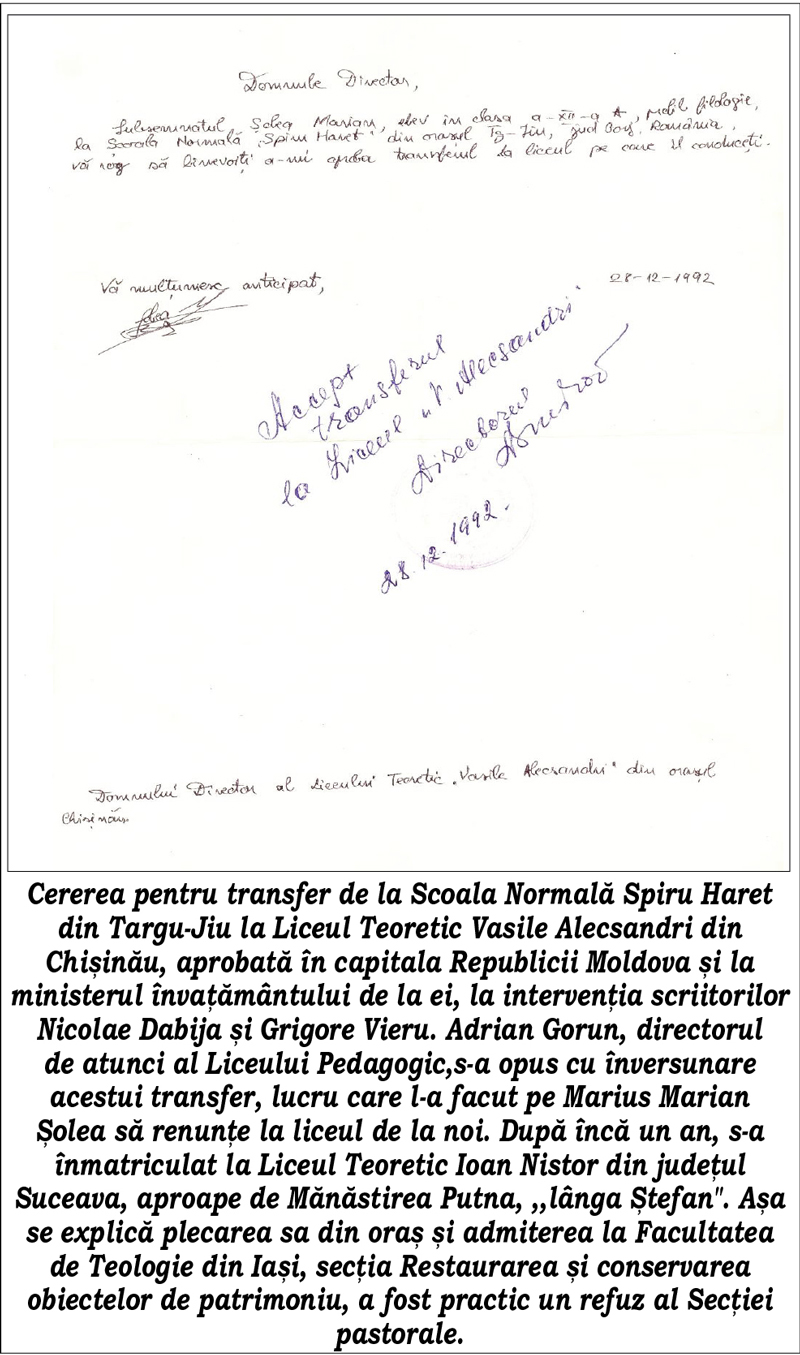 Domnule Director,
Subsemnatul Șolea Marian, elev în clasa a-XII-a A, profil filologie,
la Școala Normală „Spiru Haret" din orașul Tg-Jiu, jud Gorj, România,
vă rog să binevoiți a-mi aproba transferul la liceul pe care îl conduceți.
Vă mulțumesc anticipat,
28-12-1992
Accept
transferul
la Liceul „V. Alecsandri"
Directorul
28.12.1992.
Domnului Director al Liceului Teoretic „Vasile Alecsandri" din orașul
Chișinău.
Cererea pentru transfer de la Scoala Normală Spiru Haret
din Targu-Jiu la Liceul Teoretic Vasile Alecsandri din
Chișinău, aprobată în capitala Republicii Moldova și la
ministerul învațământului de la ei, la intervenția scriitorilor
Nicolae Dabija și Grigore Vieru. Adrian Gorun, directorul
de atunci al Liceului Pedagogic,s-a opus cu înversunare
acestui transfer, lucru care l-a facut pe Marius Marian
Șolea să renunțe la liceul de la noi. După încă un an, s-a
înmatriculat la Liceul Teoretic Ioan Nistor din județul
Suceava, aproape de Mănăstirea Putna, ,,lânga Ștefan". Așa
se explică plecarea sa din oraș și admiterea la Facultatea
de Teologie din Iași, secția Restaurarea și conservarea
obiectelor de patrimoniu, a fost practic un refuz al Secției
pastorale.